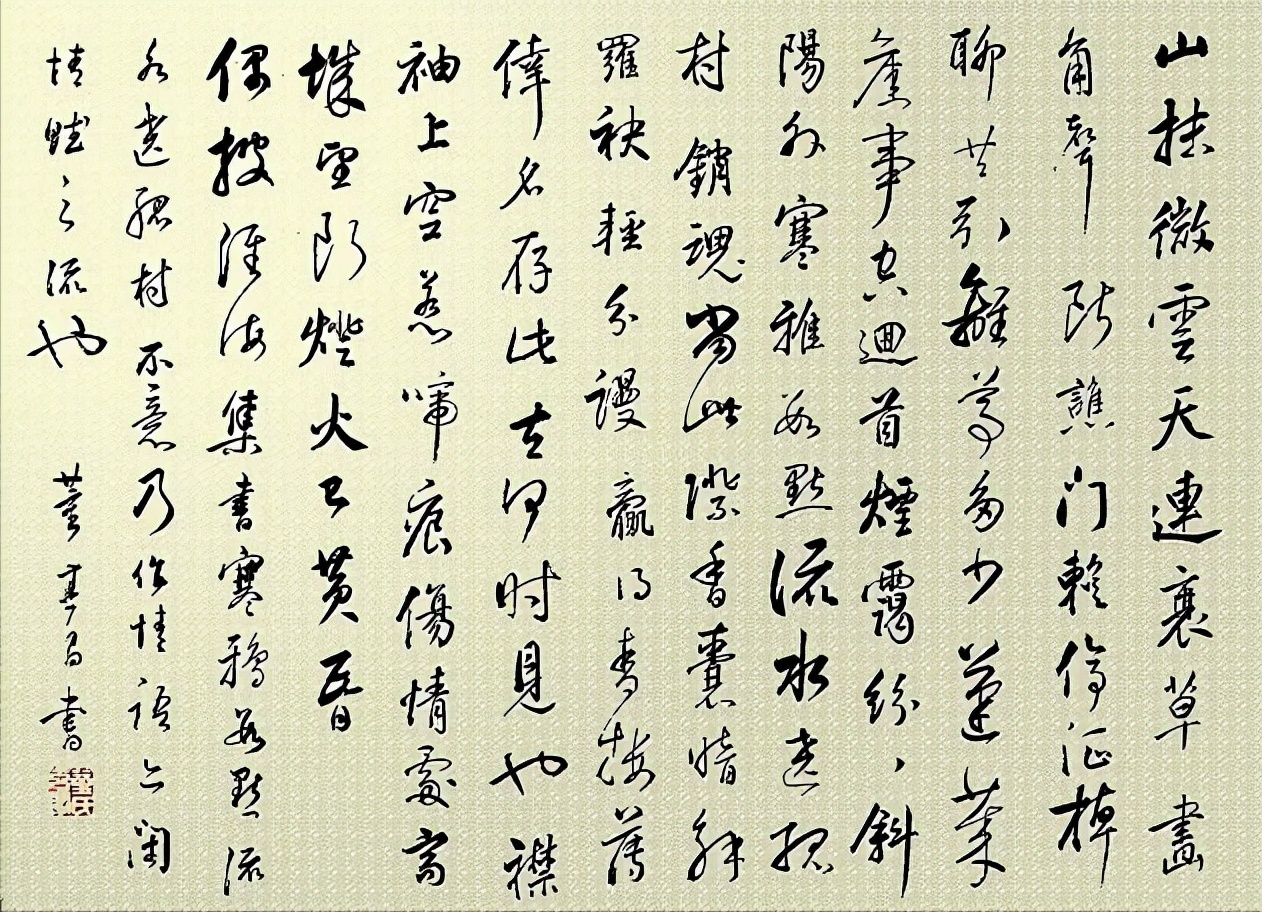 山抹微雲天連衰草畫
角聲斷譙門暫停征棹
聊共引離尊多少蓬萊
舊事空迴首煙靄紛〻斜
陽外寒鴉數點流水遶孤
村銷魂當此際香囊暗解
羅袂輕分謾贏得青樓薄
倖名存此去何時見也襟
袖上空惹啼痕傷情處高
城望斷燈火已黃昏
偶披淮海集書寒鴉數點流
水遶孤村不意乃作情語亦閑
情賦之流也
董其昌書